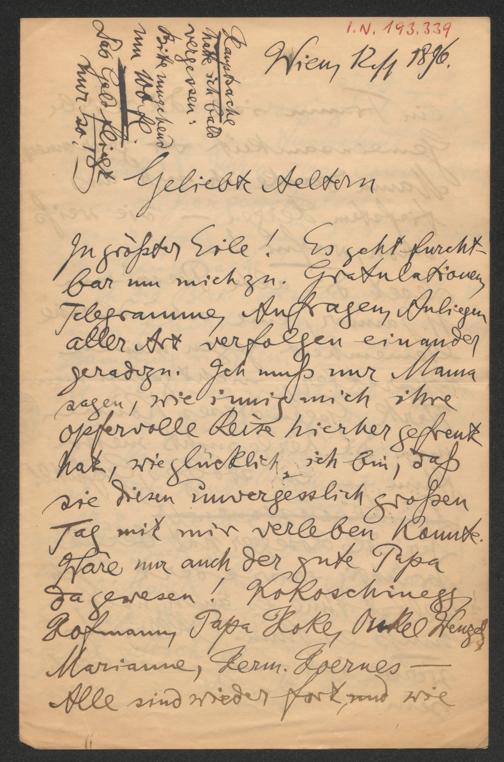 I.N. 193.339
Hauptsache
hätte ich bald
vergessen:
Bitte umgehend
um
Das Geld fliegt
nur so!
Wien, 1896.
Geliebte Aeltern
In größter Eile! Es geht furcht-
bar um mich zu. Gratulationen,
Telegramme, Anfragen, Anliegen
aller Art verfolgen einander
geradezu. Ich muß nur Mama
sagen, wie innig mich ihre
opfervolle Reise hierher gefreut
hat, wie glücklich ich bin, daß
sie diesen unvergesslich großen
Tag mit mir verleben konnte.
Wäre nur auch der gute Papa
dagewesen! Kokoschinegg,
Hofmann, Papa Onkel Wenzel,
Marianne, Herm.
Alle sind wieder fort, und wie